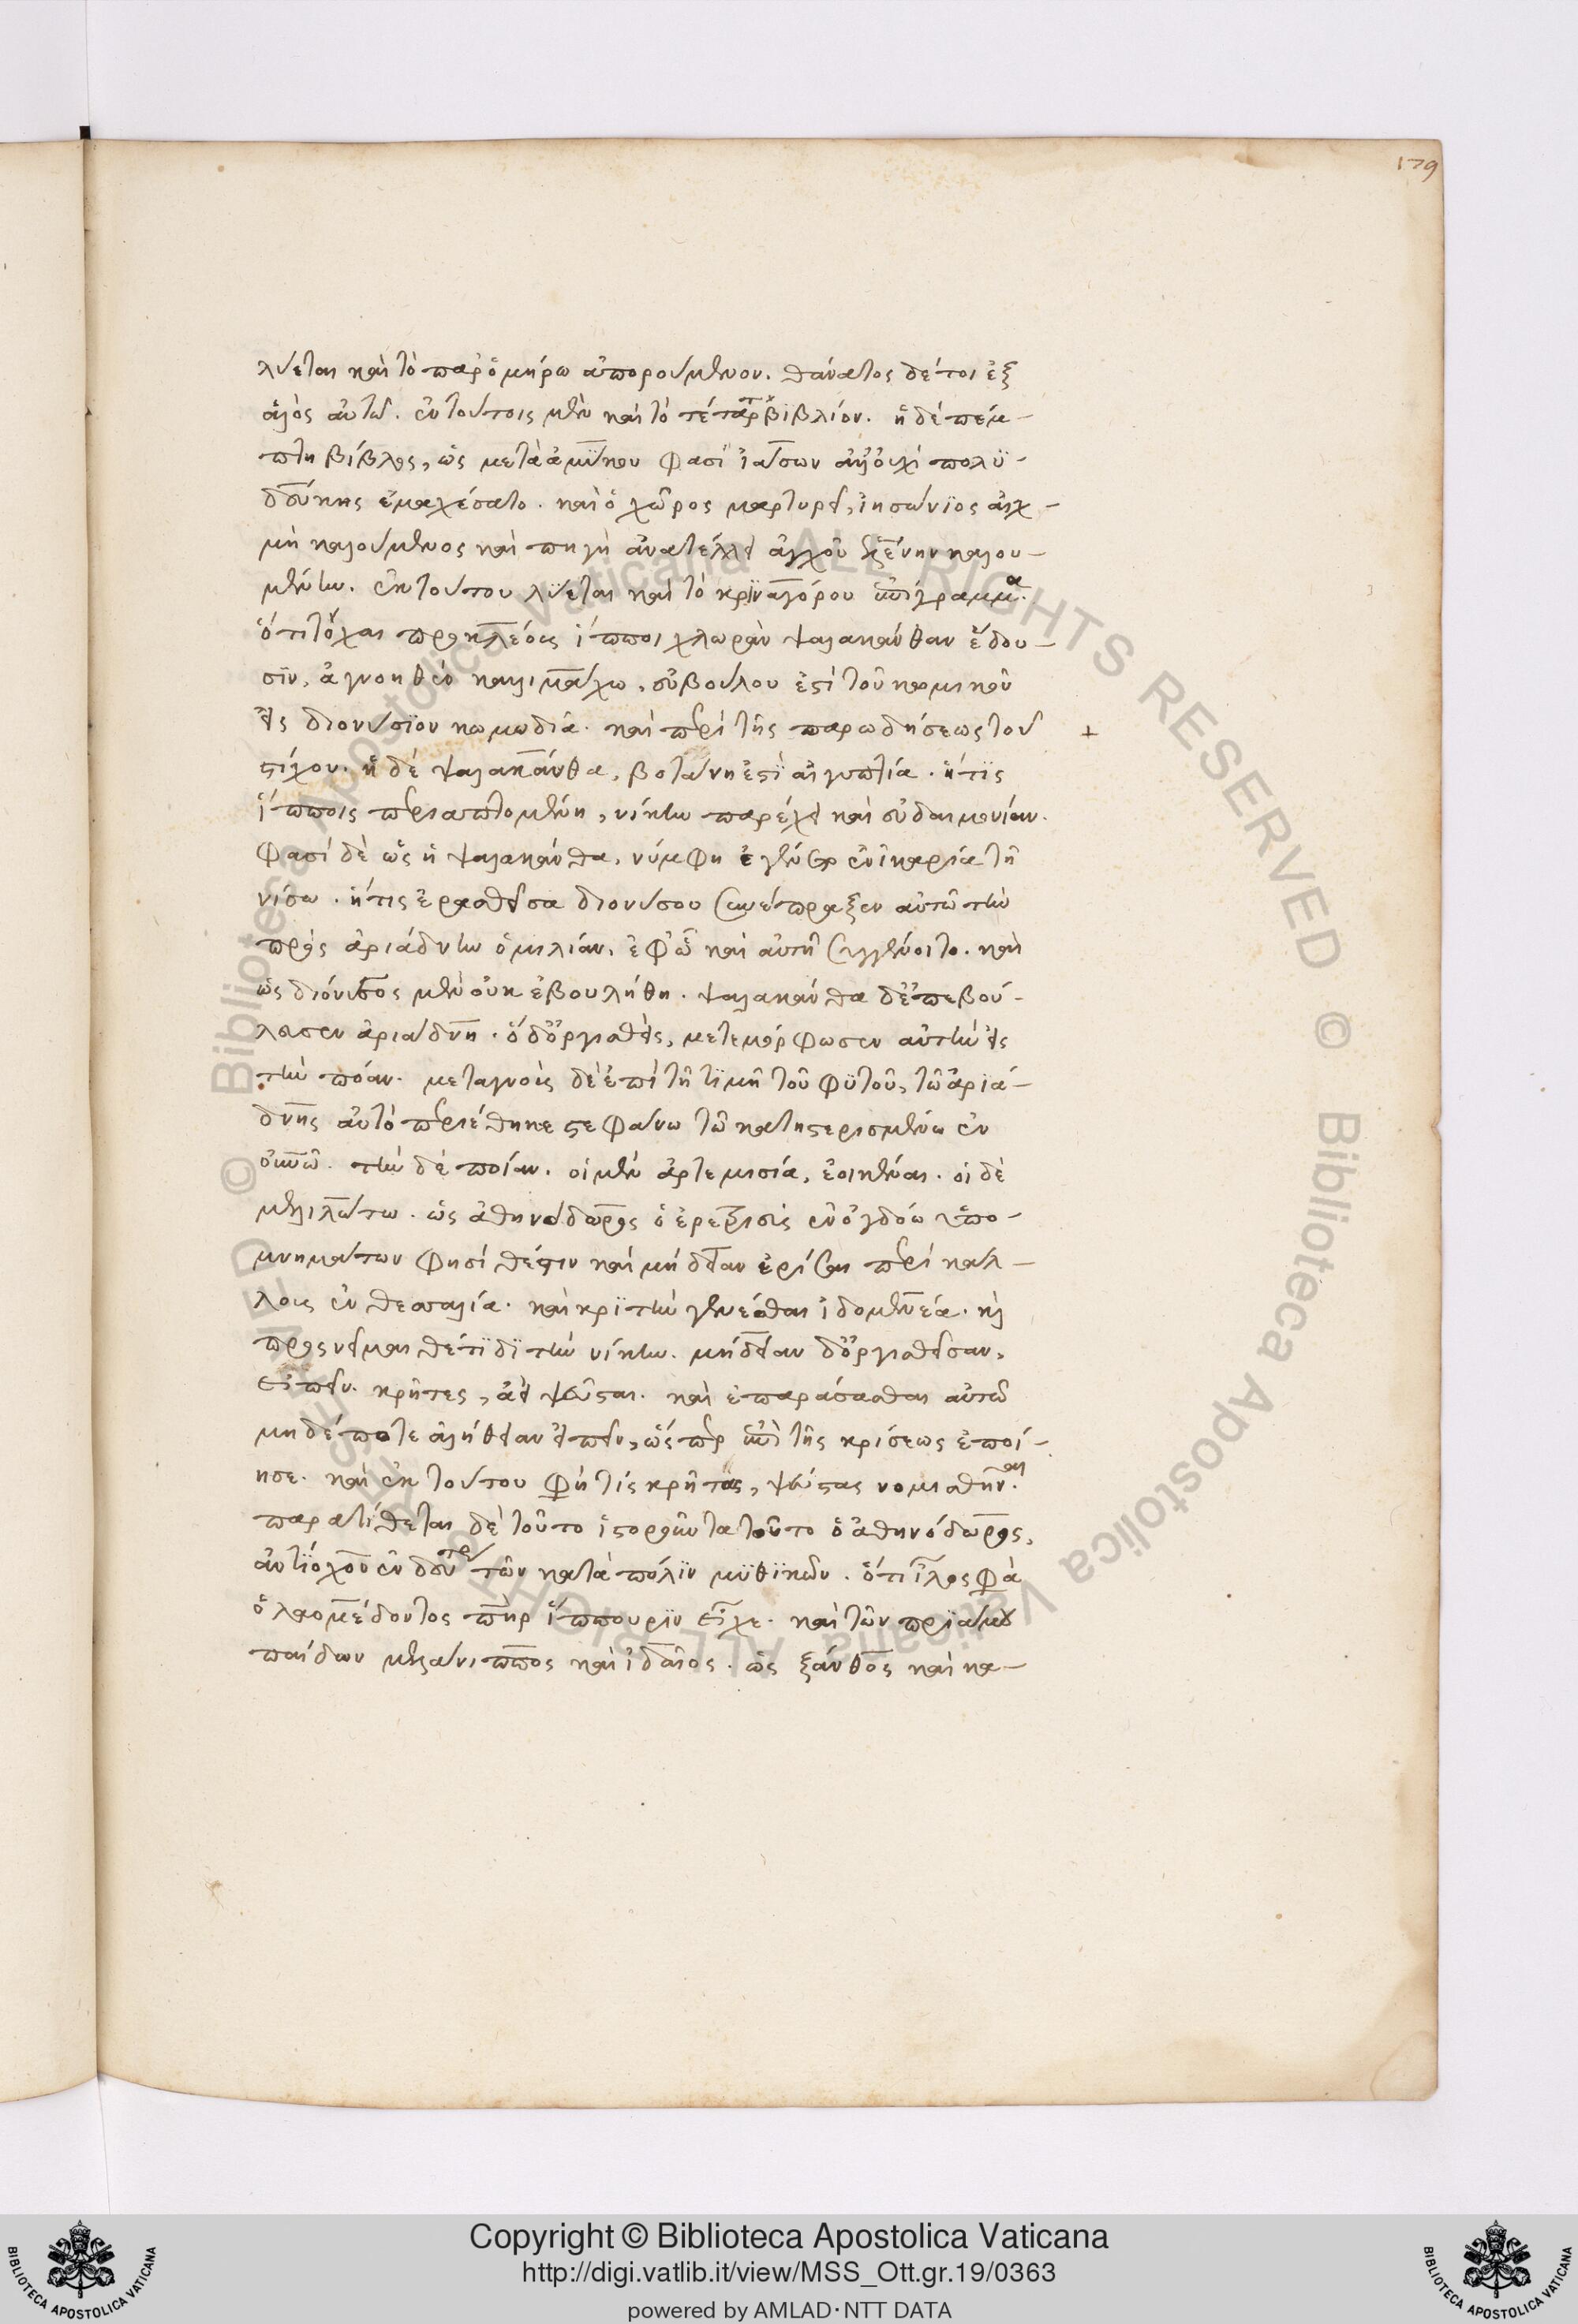 179
λύεται καὶ τὸ παρ' ὁμήρω ἀπορούμενον. θάνατος δέ τοι ἐξ
ἁλὸς αὐτῶ. ἐν τούτοις μὲν καὶ τὸ τέταρτον βιβλίον. ἡ δὲ πέμ-
πτη βίβλος, ὡς μετὰ ἀμύκου φασὶ ἰάσων οὐχὶ πολυ-
δεύκης ἐμαχέσατο. καὶ ὁ χῶρος μαρτυρεῖ, ἰησώνιος αἰχ-
μὴ καλούμενος καὶ πηγὴ ἀνατέλλει ἀγχοῦ ἑλένην καλου-
μένην. ἐκ τούτου λύεται καὶ τὸ κριναγόρου ἐπίγραμμα.
ἵπποι χλωρὰν ψαλακάνθαν ἔδου-
σιν, ἀγνοηθὲν καλιμάχω, εὐβούλου ἐστὶ τοῦ κωμικοῦ
εἰς διονύσιον κωμωδία. καὶ περὶ τῆς παρωδήσεως τοῦ
+
στίχου. ἡ δὲ ψαλακάνθα, βοτάνη ἐστὶ αἰγυπτία. ἥτις
ἵπποις περιαπτομένη, νίκην παρέχει καὶ εὐδαιμονίαν.
φασὶ δὲ ὡς ἡ ψαλακάνθα, νύμφη ἐγένετο ἐν ἰκαρία τῆ
νίσω. ἥτις ἐρασθεῖσα διονύσου συνέπραξεν αὐτῶ τὴν
πρὸς ἀριάδνην ὁμιλίαν, ἐφ' ὧ καὶ αὐτῆ συγγένοιτο. καὶ
ὡς διόνυσος μὲν οὐκ ἐβουλήθη. ψαλακάνθα δ' ἐπεβού-
λευσεν ἀριάδνη. ὁ δ' ὀργισθεὶς, μετεμόρφωσεν αὐτὴν εἰς
τὴν πόαν. μεταγνοὺς δὲ ἐπὶ τῆ τιμῆ τοῦ φυτοῦ, τῶ ἀριά-
δνης αὐτὸ περιέθηκε στεφάνω τῶ κατηστερισμένω ἐν
οὐνῶ. τὴν δὲ ποίαν. οἱ μὲν ἀρτεμισία, ἐοικέναι. οἱ δὲ
μελιλώτω. ὡς ἀθηνόδωρος ὁ ἐρετριεὺς ἐν ὀγδόω ὑπο-
μνημάτων φησὶ θέτιν καὶ μήδειαν ἐρίσαι περὶ κάλ-
λους ἐν θεσσαλία. καὶ κριτὴν γενέσθαι ἰδομενέα. καὶ
προσνεῖμαι θέτιδι τὴν νίκην. μήδειαν δ' ὀργισθεῖσαν,
εἰπεῖν. κρῆτες, ἀεὶ ψεῦσται. καὶ ἐπαράσασθαι αὐτῶ
μηδέποτε ἀλήθειαν εἰπεῖν, ὥσπερ ἐπὶ τῆς κρίσεως ἐποί-
ησε. καὶ ἐκ τούτου φησὶ τοὺς κρῆτας, ψεύστας νομισθῆναι.
παρατίθεται δὲ τοῦτο ἱστοροῦντα τοῦτο ὁ ἀθηνόδωρος,
ἀντίοχον ἐν δευτέρω τῶν κατὰ πόλιν μυθικῶν. ὅτι ἶλος φασὶ
ὁ λαομέδοντος πατὴρ ἵππουριν εἶχε. καὶ τῶν πριάμου
παίδων μελάνιππος καὶ ἰδαῖος. ὡς ξάνθος καὶ κα-
Copyright © Biblioteca Apostolica Vaticana
http://digi.vatlib.it/view/MSS_Ott.gr.19/0363
powered by AMLAD·NTT DATA
© Biblioteca Apostolica Vaticana ALL RIGHTS RESERVED © Biblioteca Apostolica Vaticana ALL RIGHTS RESERVED
BIBLIOTECA APOSTOLICA VATICANA
BIBLIOTECA APOSTOLICA VATICANA